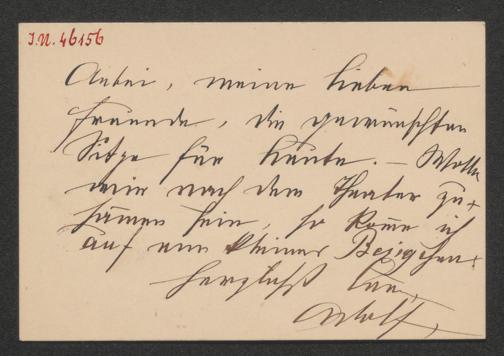 I.N. 46156
Anbei, meine lieben
Freunde, die gewünschten
Sitze für heute. – Wollen
wir nach dem Theater zu-
sammen sein, so komme ich
auf ein kleines
herzlichst
Adolf